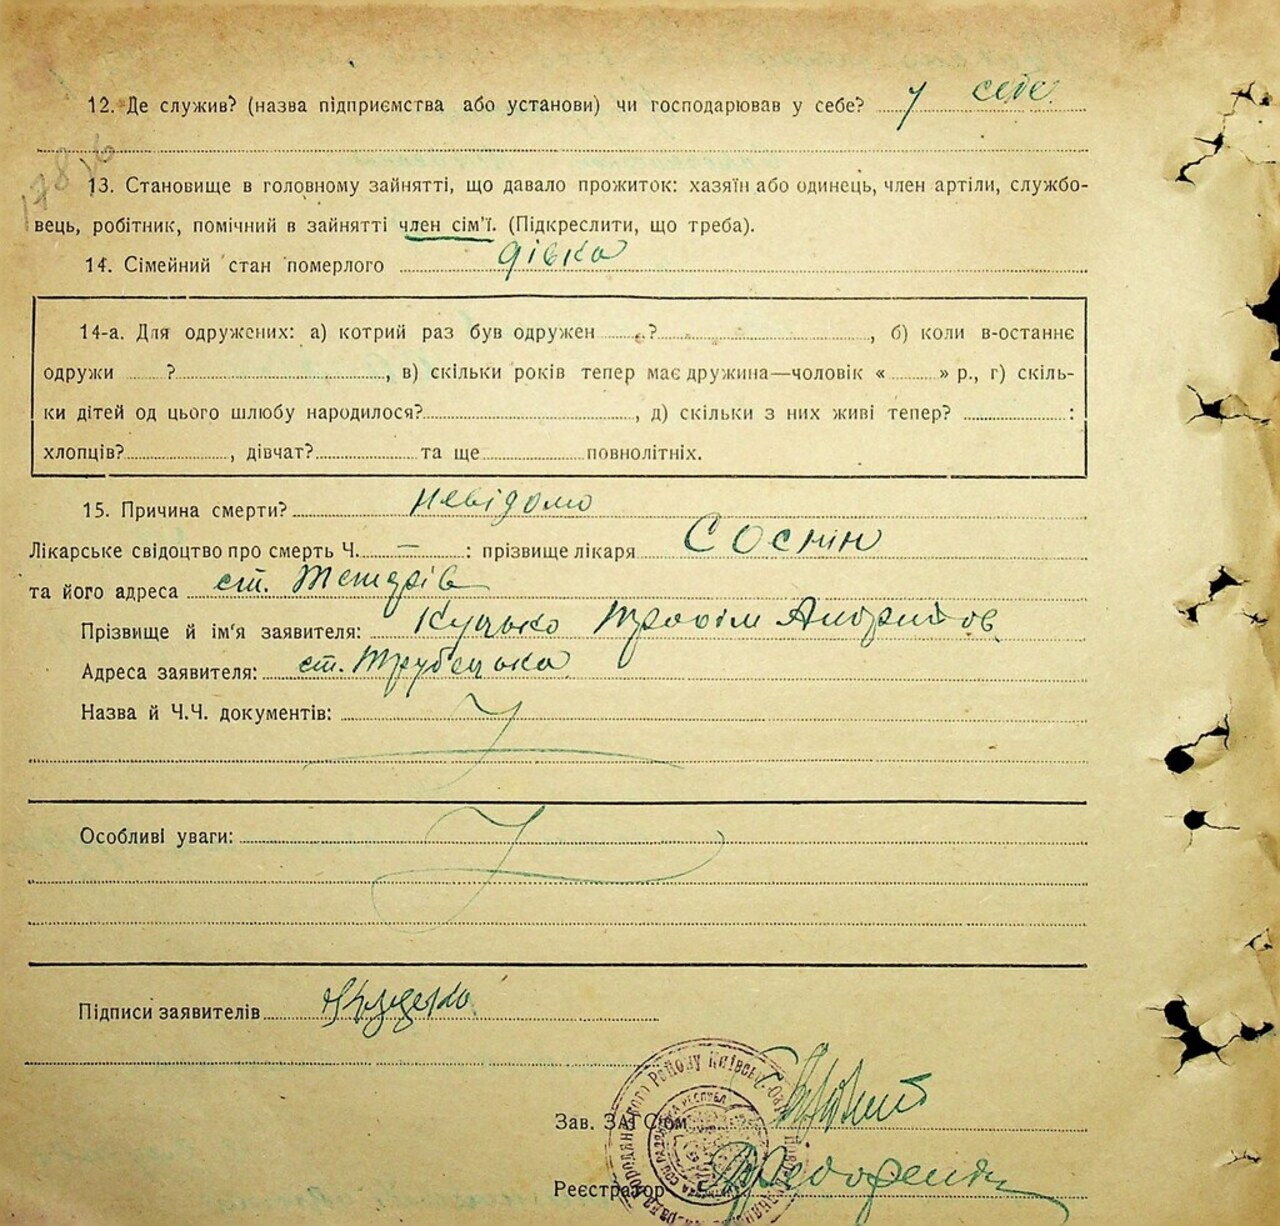 12. Де служив? (назва підприємства або установи) чи господарював у себе? у себе
17816
13. Становище в головному зайнятті, що давало прожиток: хазяїн або одинець, член артіли, службо-
вець, робітник, помічний в зайнятті член сім'ї. (Підкреслити, що треба).
14. Сімейний стан померлого дівка
14-а. Для одружених: а) котрий раз був одружен ?, б) коли в-останнє
одружи ?, в) скільки років тепер має дружина—чоловік « » р., г) скіль-
ки дітей од цього шлюбу народилося?, д) скільки з них живі тепер? :
хлопців?, дівчат? та ще повнолітніх.
15. Причина смерти? невідомо
Лікарське свідоцтво про смерть Ч. — : прізвище лікаря Соснін
та його адреса ст.
Прізвище й ім'я заявителя: Куцько Трохім
Адреса заявителя: ст. Трубецька
Назва й Ч.Ч. документів:
Особливі уваги:
Підписи заявителів
Зав. ЗАГС'ом
Реєстратор